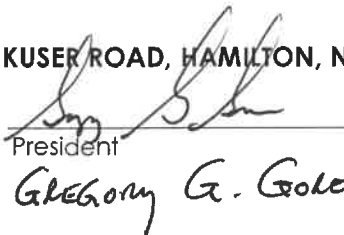 KUSER ROAD, HAMILTON, N
President
GREGORY G. GORE